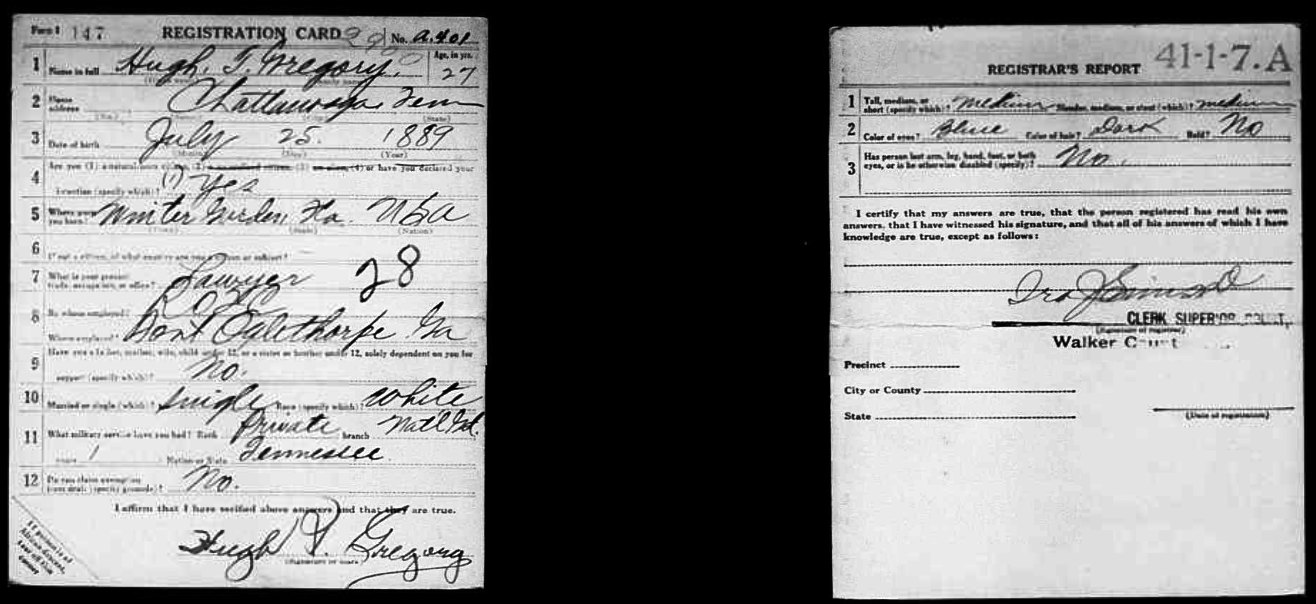 Form 1 147 REGISTRATION CARD No. A.401
1 Name in full Hugh. T. Gregory. Age, in yrs. 27
2 Home address Chattanooga Tenn
(State)
3 Date of birth July 25. 1889
(Month) (Day) (Year)
4 Are you (1) a natural-born citizen, (2) a naturalized citizen, (3) an alien, (4) or have you declared your
intention (specify which)? (1) Yes
5 Where were you born? Winter Garden, Fla. USA
(Town) (State) (Nation)
6 If not a citizen, of what country are you a citizen or subject?
7 What is your present trade, occupation, or office? Lawyer 28
8 By whom employed?
Where employed? Fort Oglethorpe Ga
9 Have you a father, mother, wife, child under 12, or a sister or brother under 12, solely dependent on you for
support (specify which)? No.
10 Married or single (which)? single Race (specify which)? White
11 What military service have you had? Rank Private branch Nat'l Gd.
years 1 Nation or State Tennessee.
12 Do you claim exemption from draft (specify grounds)? No.
I affirm that I have verified above answers and that they are true.
Hugh T. Gregory
(Signature or mark)
If person is of African descent, tear off this corner
41-1-7. A
REGISTRAR'S REPORT
1 Tall, medium, or short (specify which)? medium Slender, medium, or stout (which)? medium
2 Color of eyes? Blue Color of hair? Dark Bald? No
3 Has person lost arm, leg, hand, foot, or both eyes, or is he otherwise disabled (specify)? No.
I certify that my answers are true, that the person registered has read his own
answers, that I have witnessed his signature, and that all of his answers of which I have
knowledge are true, except as follows:
CLERK SUPERIOR COURT,
(Signature of registrar)
Walker
Precinct
City or County
State
(Date of registration)